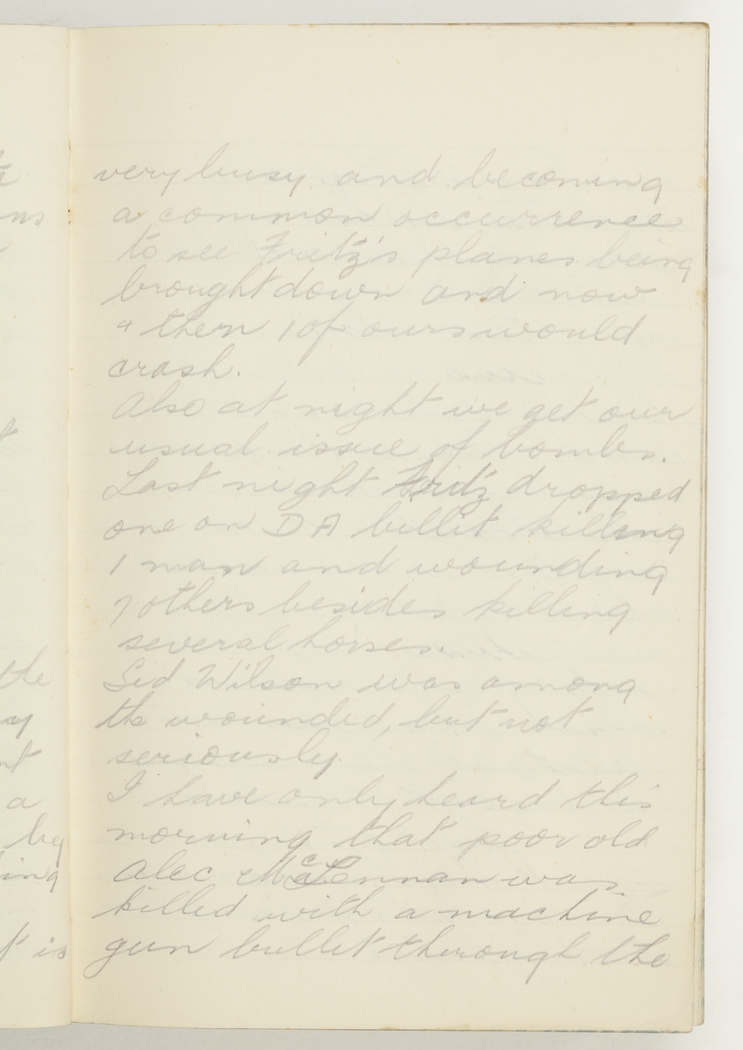 very busy and becoming
a common occurrence
to see Fritz's planes being
brought down and now
& then 1 of ours would
crash.
Also at night we get our
usual issue of bombs.
Last night Fritz dropped
one on D A billit killing
1 man and wounding
7 others besides killing
several horses.
Sid Wilson was among
the wounded, but not
seriously.
I have only heard this
morning that poor old
Alec McLennan was
killed with a machine
gun bullet through the